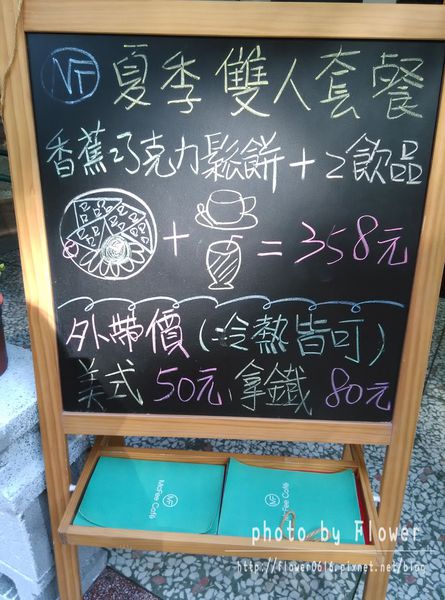 NF 夏季雙人套餐
香蕉巧克力鬆餅+2飲品
+ = 358元
外帶價(冷熱皆可)
美式 50元、拿鐵 80元
NF McFee Café
NF McFee Café
photo by Flower
http://flower0618.pixnet.net/blog